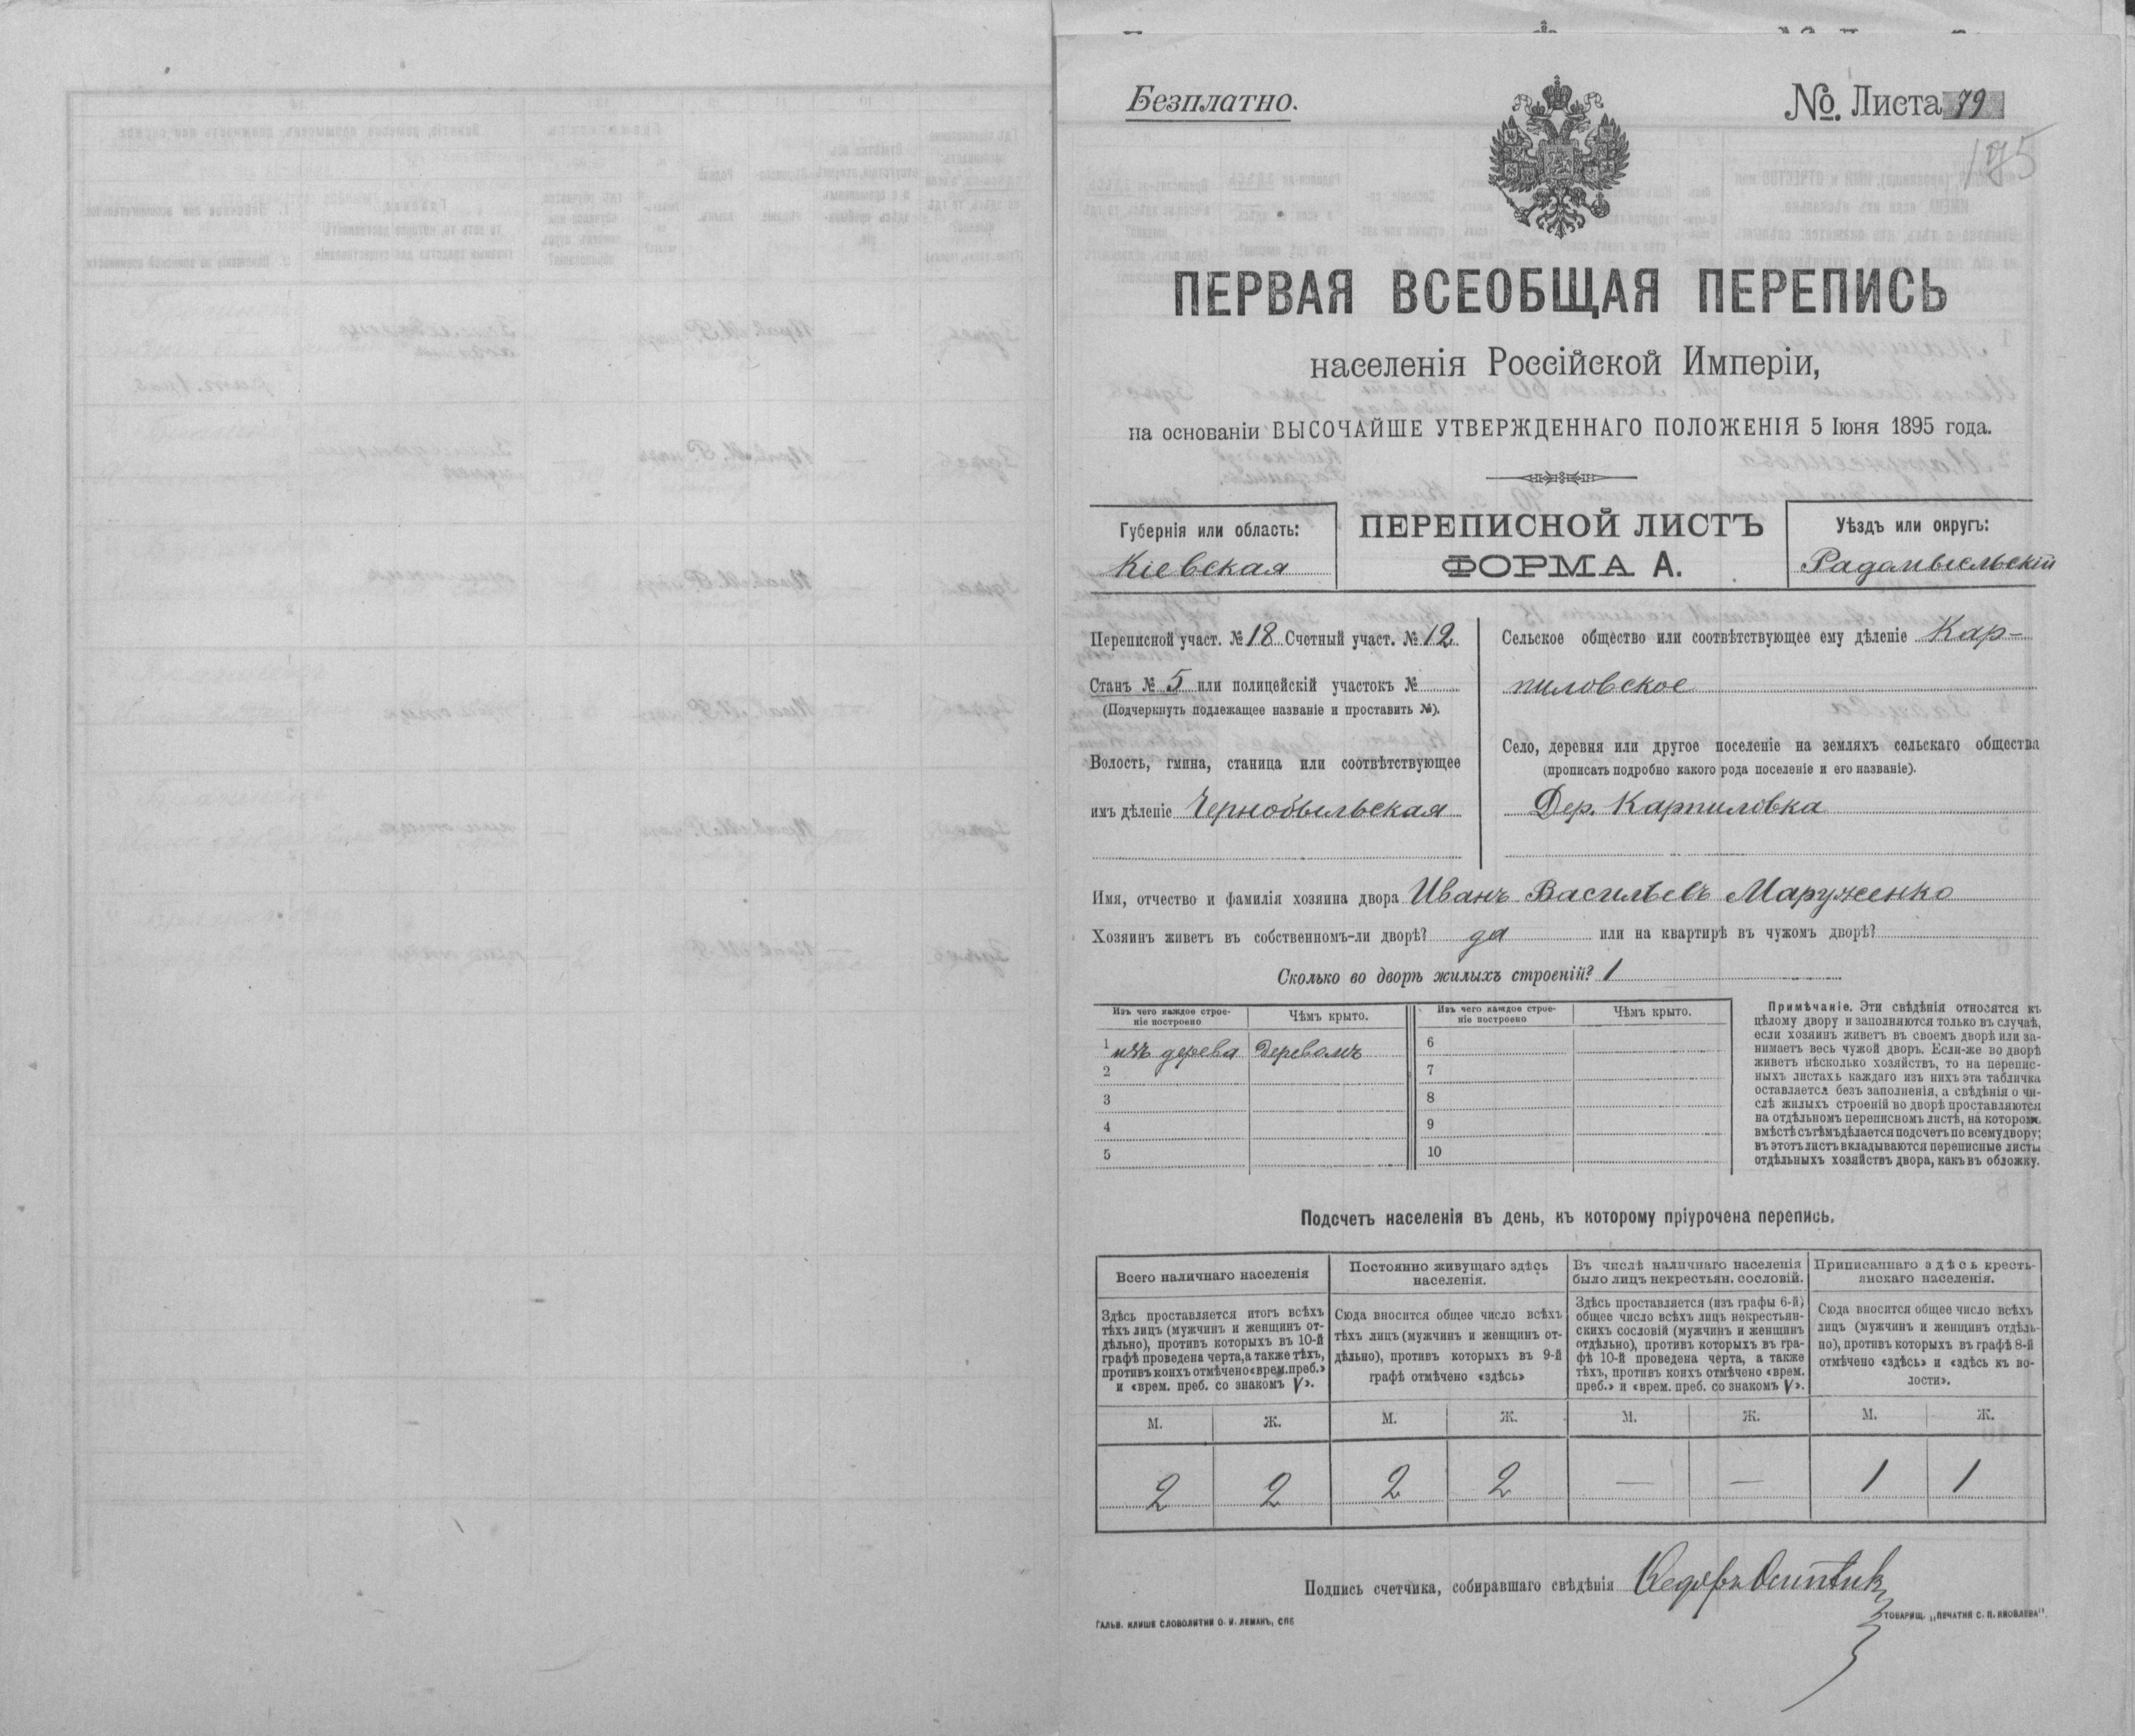 Безплатно.
№. Листа 79
195
ПЕРВАЯ ВСЕОБЩАЯ ПЕРЕПИСЬ
населенія Россійской Имперіи,
на основаніи ВЫСОЧАЙШЕ УТВЕРЖДЕННАГО ПОЛОЖЕНІЯ 5 Іюня 1895 года.
Губернія или область:
Кіевская
ПЕРЕПИСНОЙ ЛИСТЪ
ФОРМА А.
Уѣздъ или округъ:
Радомысльскій
Переписной участ. № 18 Счетный участ. № 12
Станъ № 5 или полицейскій участокъ №
(Подчеркнуть подлежащее названіе и проставить №).
Волость, гмина, станица или соотвѣтствующее
имъ дѣленіе Чернобыльская
Сельское общество или соотвѣтствующее ему дѣленіе Кар-
пиловское
Село, деревня или другое поселеніе на земляхъ сельскаго общества
(прописать подробно какого рода поселеніе и его названіе).
Дер. Карпиловка
Имя, отчество и фамилія хозяина двора Иванъ Васильевъ Маруженко
Хозяинъ живетъ въ собственномъ-ли дворѣ? да или на квартирѣ въ чужомъ дворѣ?
Сколько во дворѣ жилыхъ строеній? 1
Изъ чего каждое строе-
ніе построено
Чѣмъ крыто.
Изъ чего каждое строе-
ніе построено
Чѣмъ крыто.
1 изъ дерева Деревомъ 6
2 7
3 8
4 9
5 10
Примѣчаніе. Эти свѣдѣнія относятся къ
цѣлому двору и заполняются только въ случаѣ,
если хозяинъ живетъ въ своемъ дворѣ или за-
нимаетъ весь чужой дворъ. Если-же во дворѣ
живетъ нѣсколько хозяйствъ, то на перепис-
ныхъ листахъ каждаго изъ нихъ эта табличка
оставляется безъ заполненія, а свѣдѣнія о чи-
слѣ жилыхъ строеній во дворѣ проставляются
на отдѣльномъ переписномъ листѣ, на которомъ
вмѣстѣ съ тѣмъ дѣлается подсчетъ по всему двору;
въ этотъ листъ вкладываются переписные листы
отдѣльныхъ хозяйствъ двора, какъ въ обложку.
Подсчетъ населенія въ день, къ которому пріурочена перепись.
Всего наличнаго населенія
Здѣсь проставляется итогъ всѣхъ
тѣхъ лицъ (мужчинъ и женщинъ от-
дѣльно), противъ которыхъ въ 10-й
графѣ проведена черта, а также тѣхъ,
противъ коихъ отмѣчено «врем. преб.»
и «врем. преб. со знакомъ V».
Постоянно живущаго здѣсь
населенія.
Сюда вносится общее число всѣхъ
тѣхъ лицъ (мужчинъ и женщинъ от-
дѣльно), противъ которыхъ въ 9-й
графѣ отмѣчено «здѣсь»
Въ числѣ наличнаго населенія
было лицъ некрестьян. сословій.
Здѣсь проставляется (изъ графы 6-й)
общее число всѣхъ лицъ некрестьян-
скихъ сословій (мужчинъ и женщинъ
отдѣльно), противъ которыхъ въ гра-
фѣ 10-й проведена черта, а также
тѣхъ, противъ коихъ отмѣчено «врем.
преб.» и «врем. преб. со знакомъ V».
Приписаннаго здѣсь кресть-
янскаго населенія.
Сюда вносится общее число всѣхъ
лицъ (мужчинъ и женщинъ отдѣль-
но), противъ которыхъ въ графѣ 8-й
отмѣчено «здѣсь» и «здѣсь къ во-
лости».
М. Ж. М. Ж. М. Ж. М. Ж.
2 2 2 2 — — 1 1
Подпись счетчика, собиравшаго свѣдѣнія
ГАЛЬВ. КЛИШЕ СЛОВОЛИТНИ О. И. ЛЕМАНЪ, СПБ
ТОВАРИЩ. „ПЕЧАТНЯ С. П. ЯКОВЛЕВА".